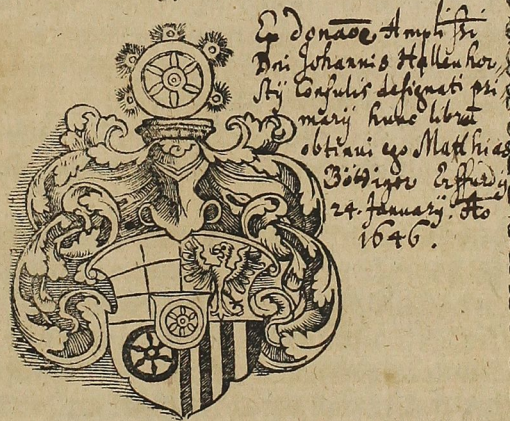 Ex donaõe Amplissi
Dni Johannis Hallenhor,
stij Consulis designati pri,
marij hunc librũ
obtinui ego Matthias
Böttiger Erffurdij
24. Januarij. Aõ
1646.